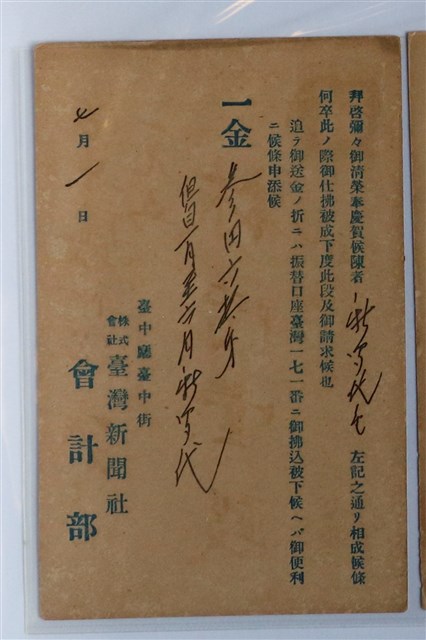 拜啓彌々御清榮奉慶賀候陳者新聞代七左記之通リ相成候條
何卒此ノ際御仕拂被成下度此段及御請求候也
追テ御送金ノ折ニハ振替口座臺灣一七一番ニ御拂込被下候ヘバ御便利
ニ候條申添候
一金 参円六拾戔
但自一月至六月新聞代
七月一日
臺中廳臺中街
株式會社臺灣新聞社
會計部